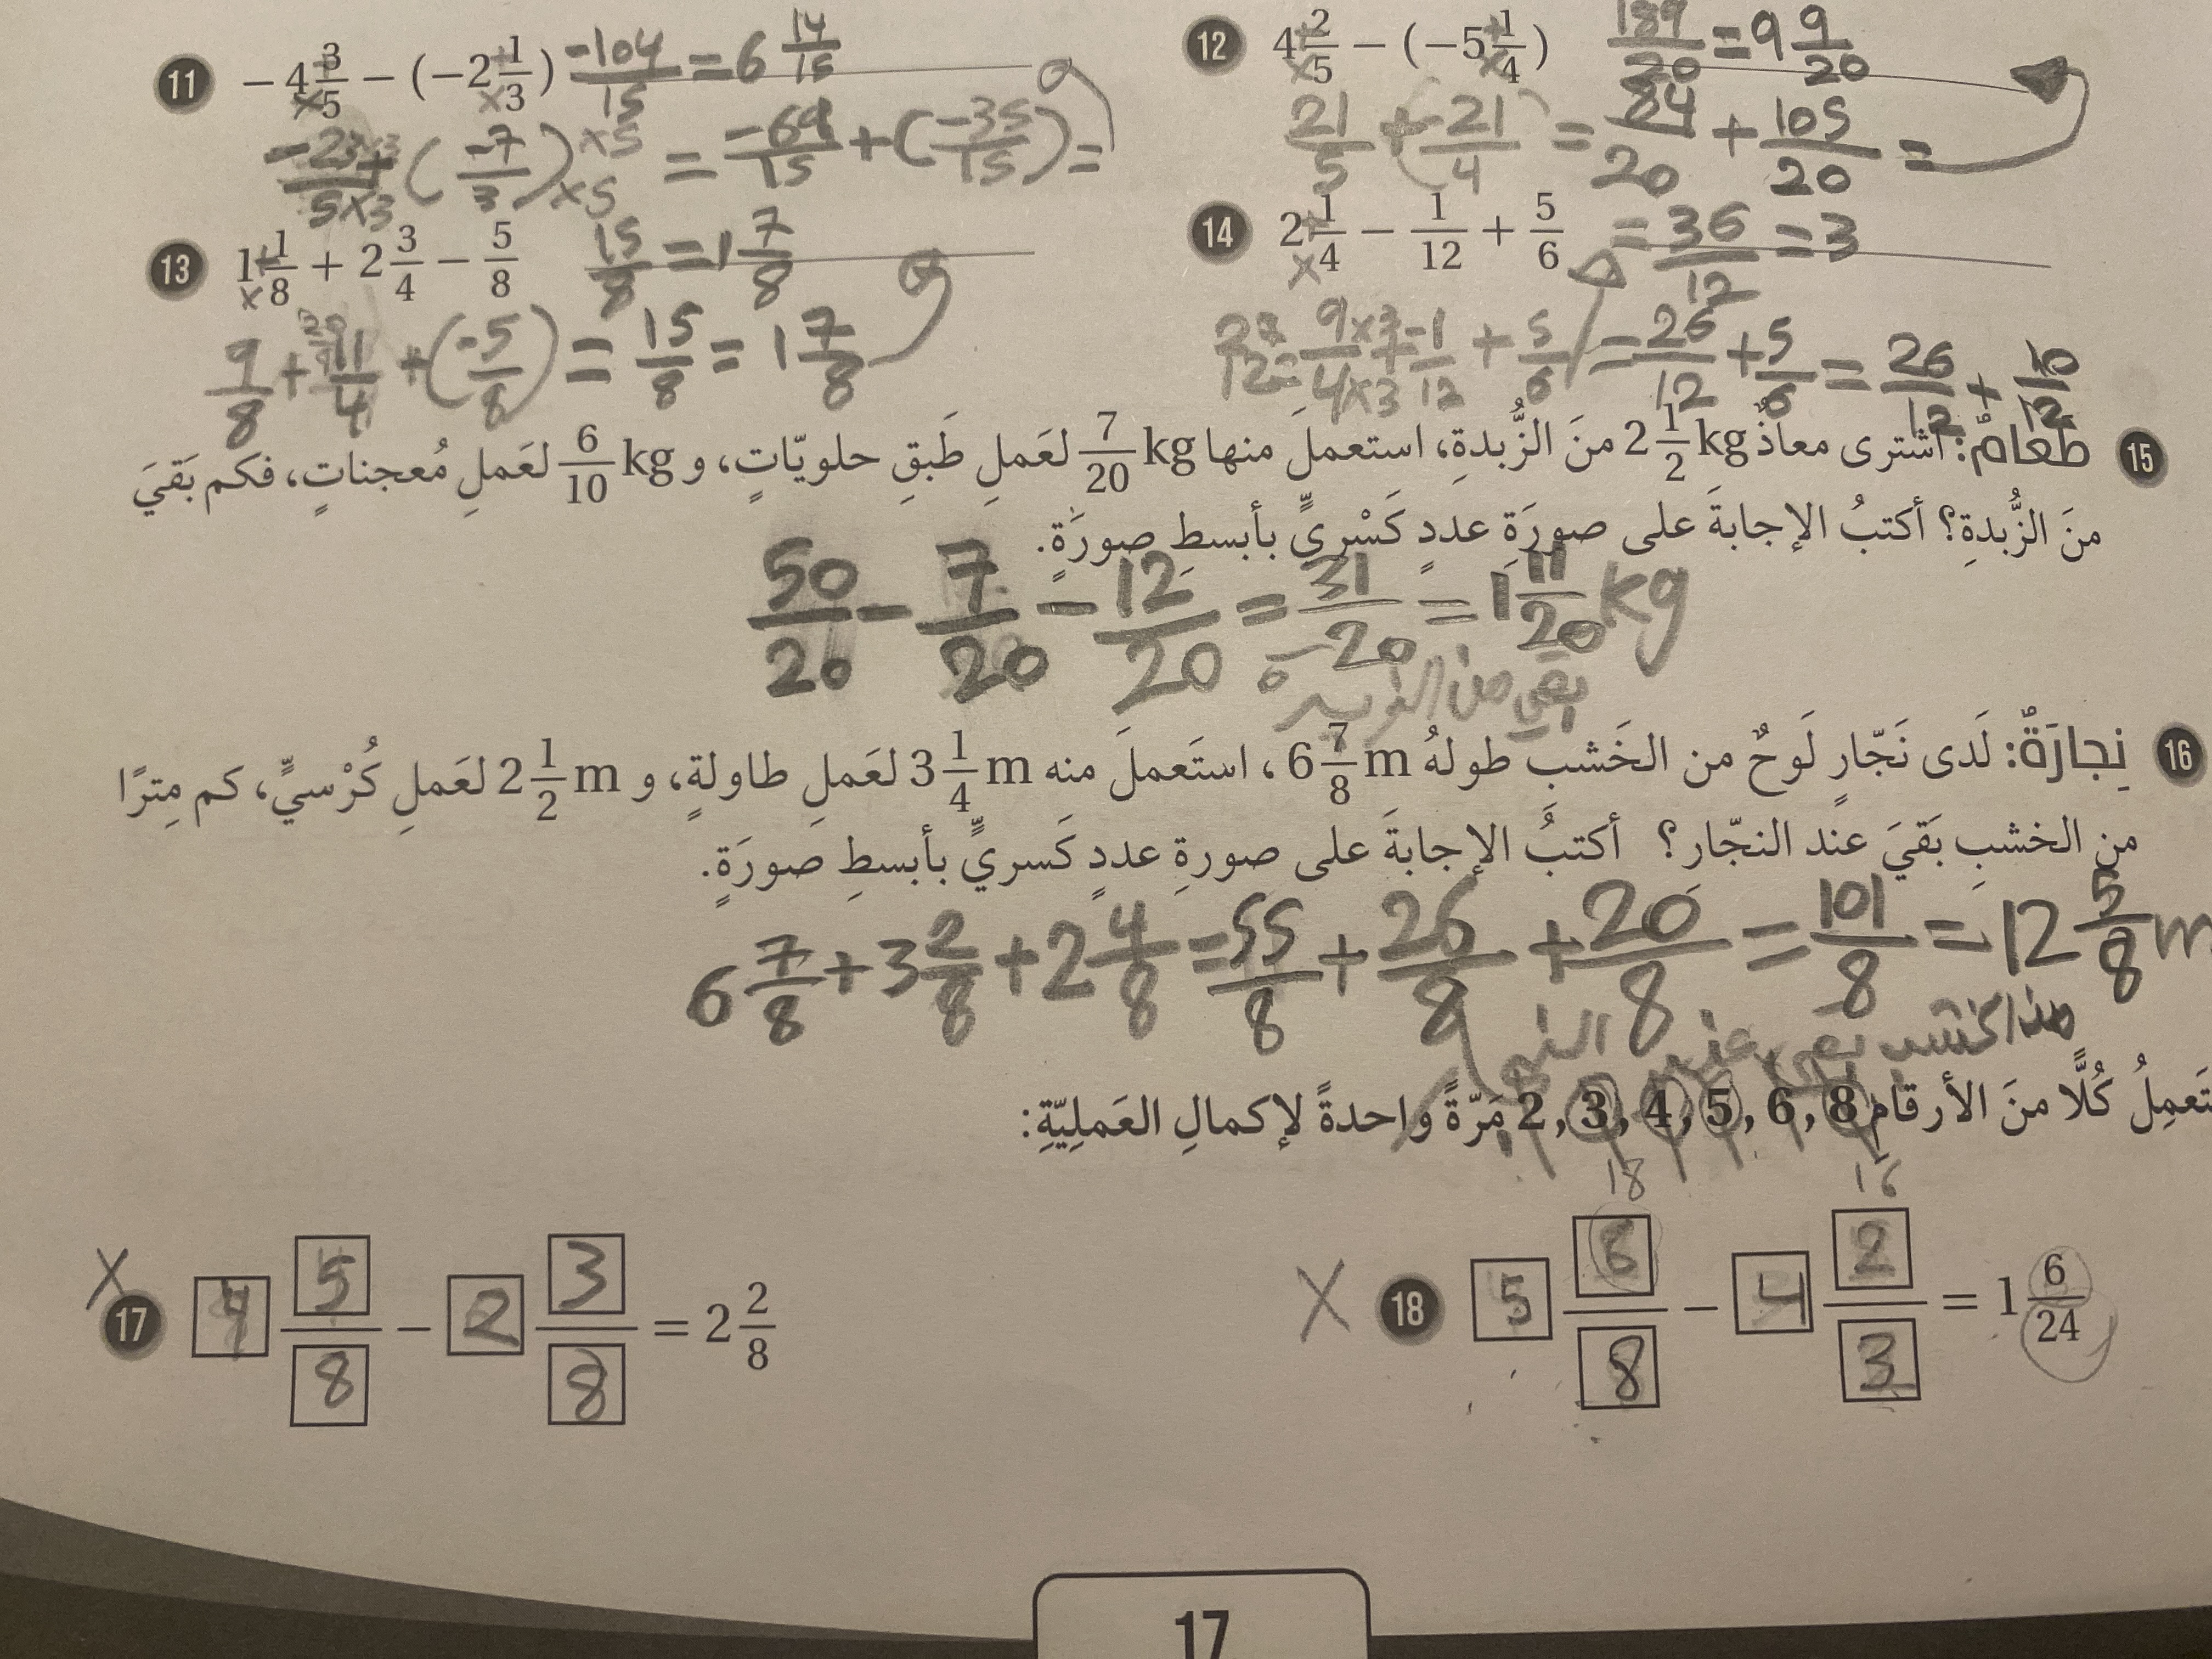 11 −4 3/5 − (−2 1/3) -104/15 = 6 14/15
-23×3/5×3 + (-7/3) ×5/×5 = -69/15 + (-35/15) =
12 4 2/5 − (−5 1/4) 189/20 = 9 9/20
21/5 + (-21/4) = 84/20 + 105/20 =
13 1 1/8 + 2 3/4 − 5/8 15/8 = 1 7/8
9/8 + 11/4 + (-5/8) = 15/8 = 1 7/8
14 2 1/4 − 1/12 + 5/6 = 36/12 = 3
9×3/4×3 + -1/12 + 5/6 = 26/12 + 5/6 = 26/12 + 10/12
15 طَعامٌ: اشترى معاذٌ 2 1/2 kg منَ الزُّبدةِ، استعملَ منها 7/20 kg لعَملِ طَبقِ حلويّاتٍ، و 6/10 kg لعَملِ مُعجناتٍ، فكم بَقيَ
منَ الزُّبدةِ؟ أكتبُ الإجابةَ على صورَةِ عددٍ كَسْريٍّ بأبسطِ صورَةٍ.
50/20 − 7/20 − 12/20 = 31/20 = 1 11/20 kg
بقي من الزبدة
16 نِجارَةٌ: لَدى نَجّارٍ لَوحٌ من الخَشبِ طولهُ 6 7/8 m، استَعملَ منه 3 1/4 m لعَملِ طاولةٍ، و 2 1/2 m لعَملِ كُرْسيٍّ، كم مِترًا
من الخشبِ بَقيَ عند النجّار؟ أكتبُ الإجابةَ على صورةِ عددٍ كَسريٍّ بأبسطِ صورَةٍ.
6 7/8 + 3 2/8 + 2 4/8 = 55/8 + 26/8 + 20/8 = 101/8 = 12 5/8 m
من الخشب بقي عند
كُلًّا منَ الأرقام 2, 3, 4, 5, 6, 8 مَرّةً واحدةً لإكمالِ العَمليّةِ:
18 16
X 17 4 5/8 − 2 3/8 = 2 2/8
X 18 5 6/8 − 4 2/3 = 1 6/24
17